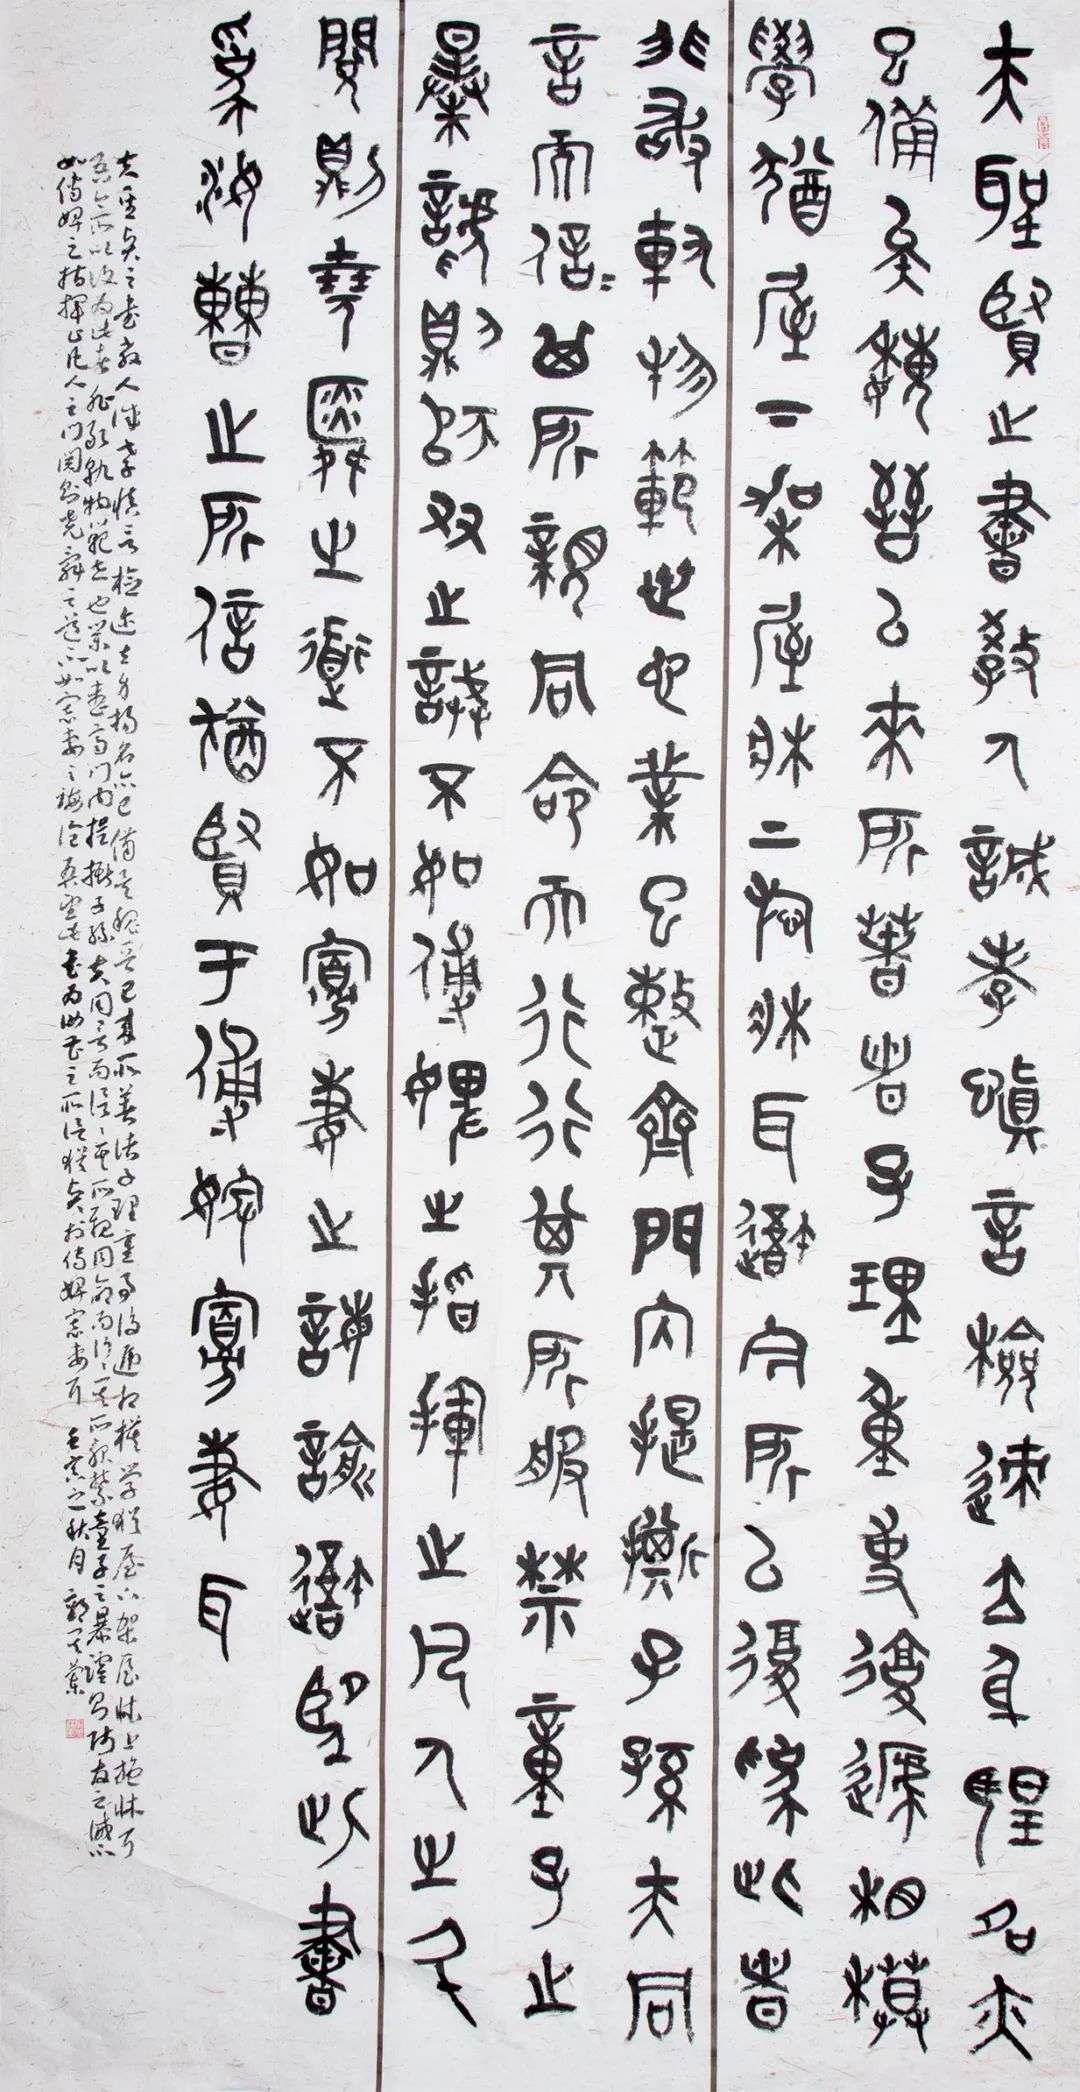 夫聖賢之書教人誠孝慎言檢迹立身揚名亦
已備矣魏晉已來所著者子理重事復遞相模
學猶屋下架屋牀上施牀耳吾今所以復為此者
非敢軌物範世也業以整齊門內提撕子孫夫同
言而信〻其所親同命而行行其所服禁童子之
暴謔則師友之誡不如傅婢之指揮止凡人之鬥
鬩則堯舜之道不如寡妻之誨諭吾望此書
為汝曹之所信猶賢于傅婢寡妻耳
夫聖賢之書教人誠孝慎言檢迹立身揚名亦已備矣魏晉已來所著諸子理重事復遞相模學猶屋下架屋牀上施牀耳
吾今所以復為此者非敢軌物範世也業以整齊門內提撕子孫夫同言而信〻其所親同命而行〻其所服禁童子之暴謔則師友之誡不
如傅婢之指揮止凡人之鬥鬩則堯舜之道不如寡妻之誨諭吾望此書為汝曹之所信猶賢於傅婢寡妻耳 壬寅之秋月 郭